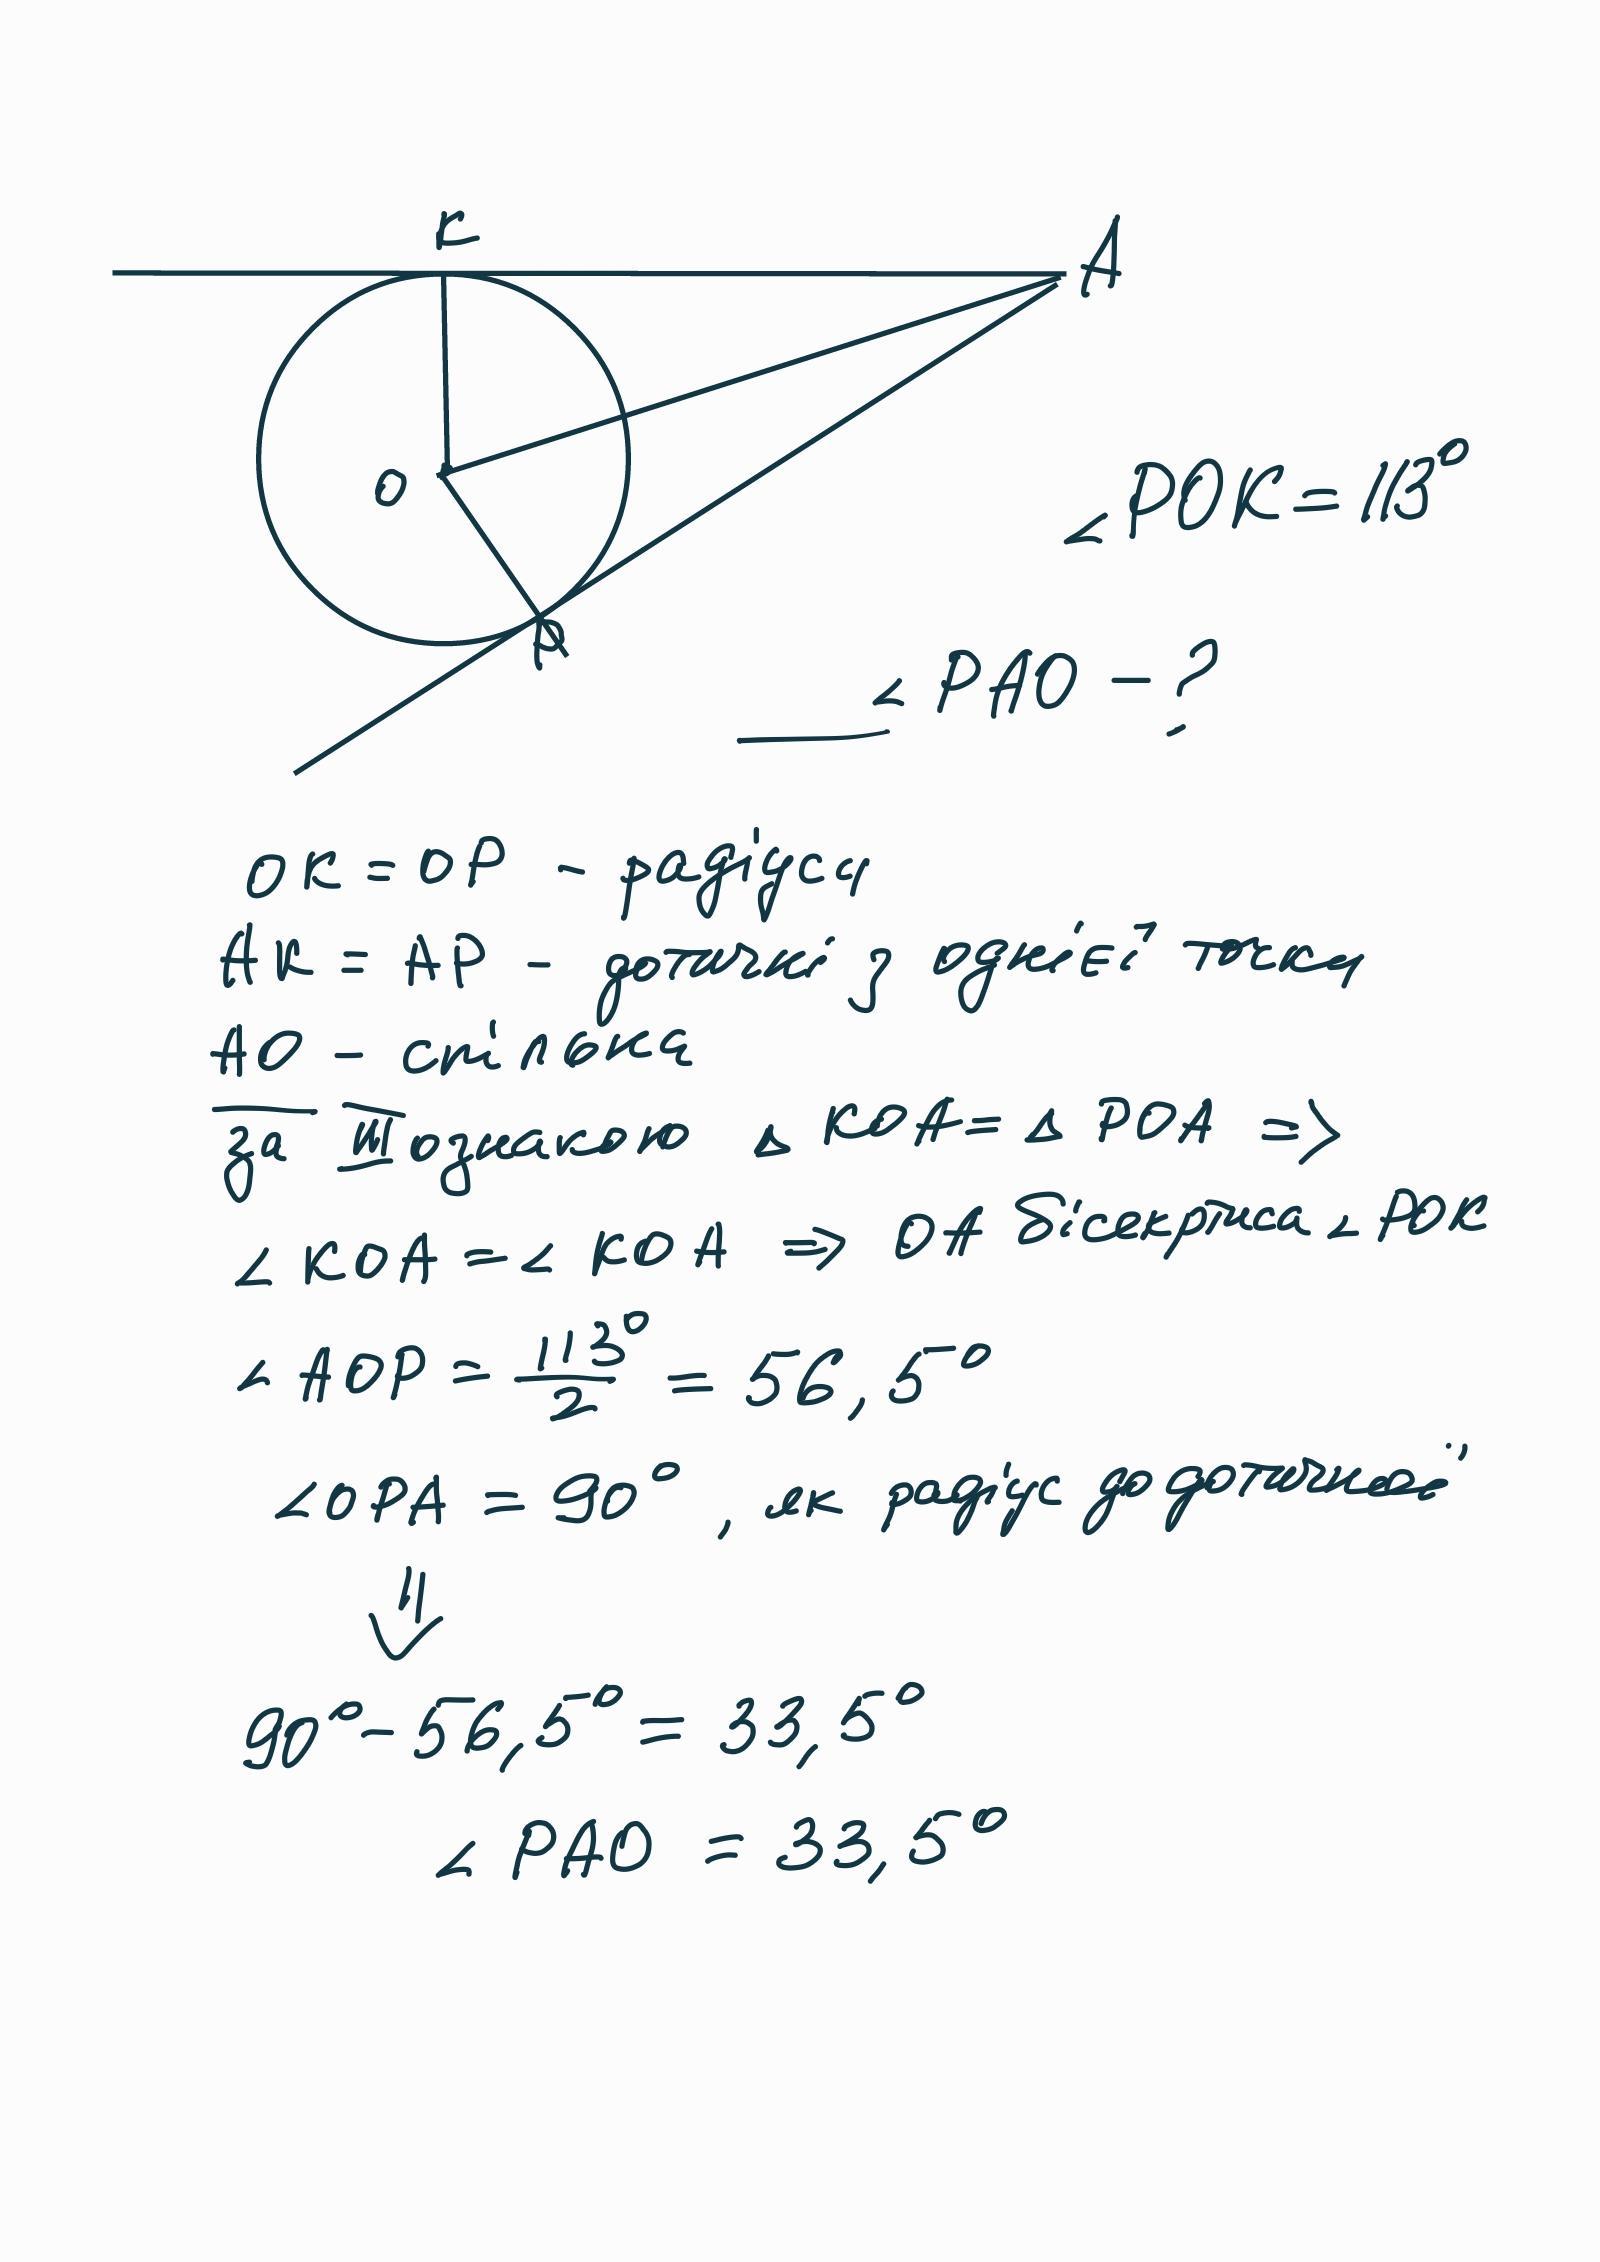 K
A
O
P
∠POK = 113°
∠PAO - ?
OK = OP - радіуси
AK = AP - дотичні з однієї точки
AO - спільна
за III ознакою △KOA = △POA =>
∠KOA = ∠KOA => OA бісектриса ∠POK
∠AOP = 113°/2 = 56,5°
∠OPA = 90°, як радіус до дотичної
⇓
90° - 56,5° = 33,5°
∠PAO = 33,5°